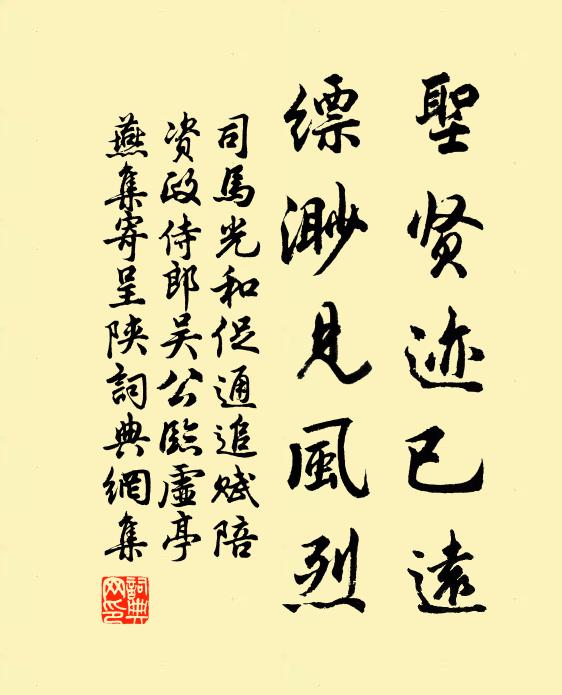 聖贤迹已遠
缥渺見風烈
司馬光和促通追赋陪
资政侍郎吴公臨虛亭
燕集寄呈陕詞典網集
詞典网印